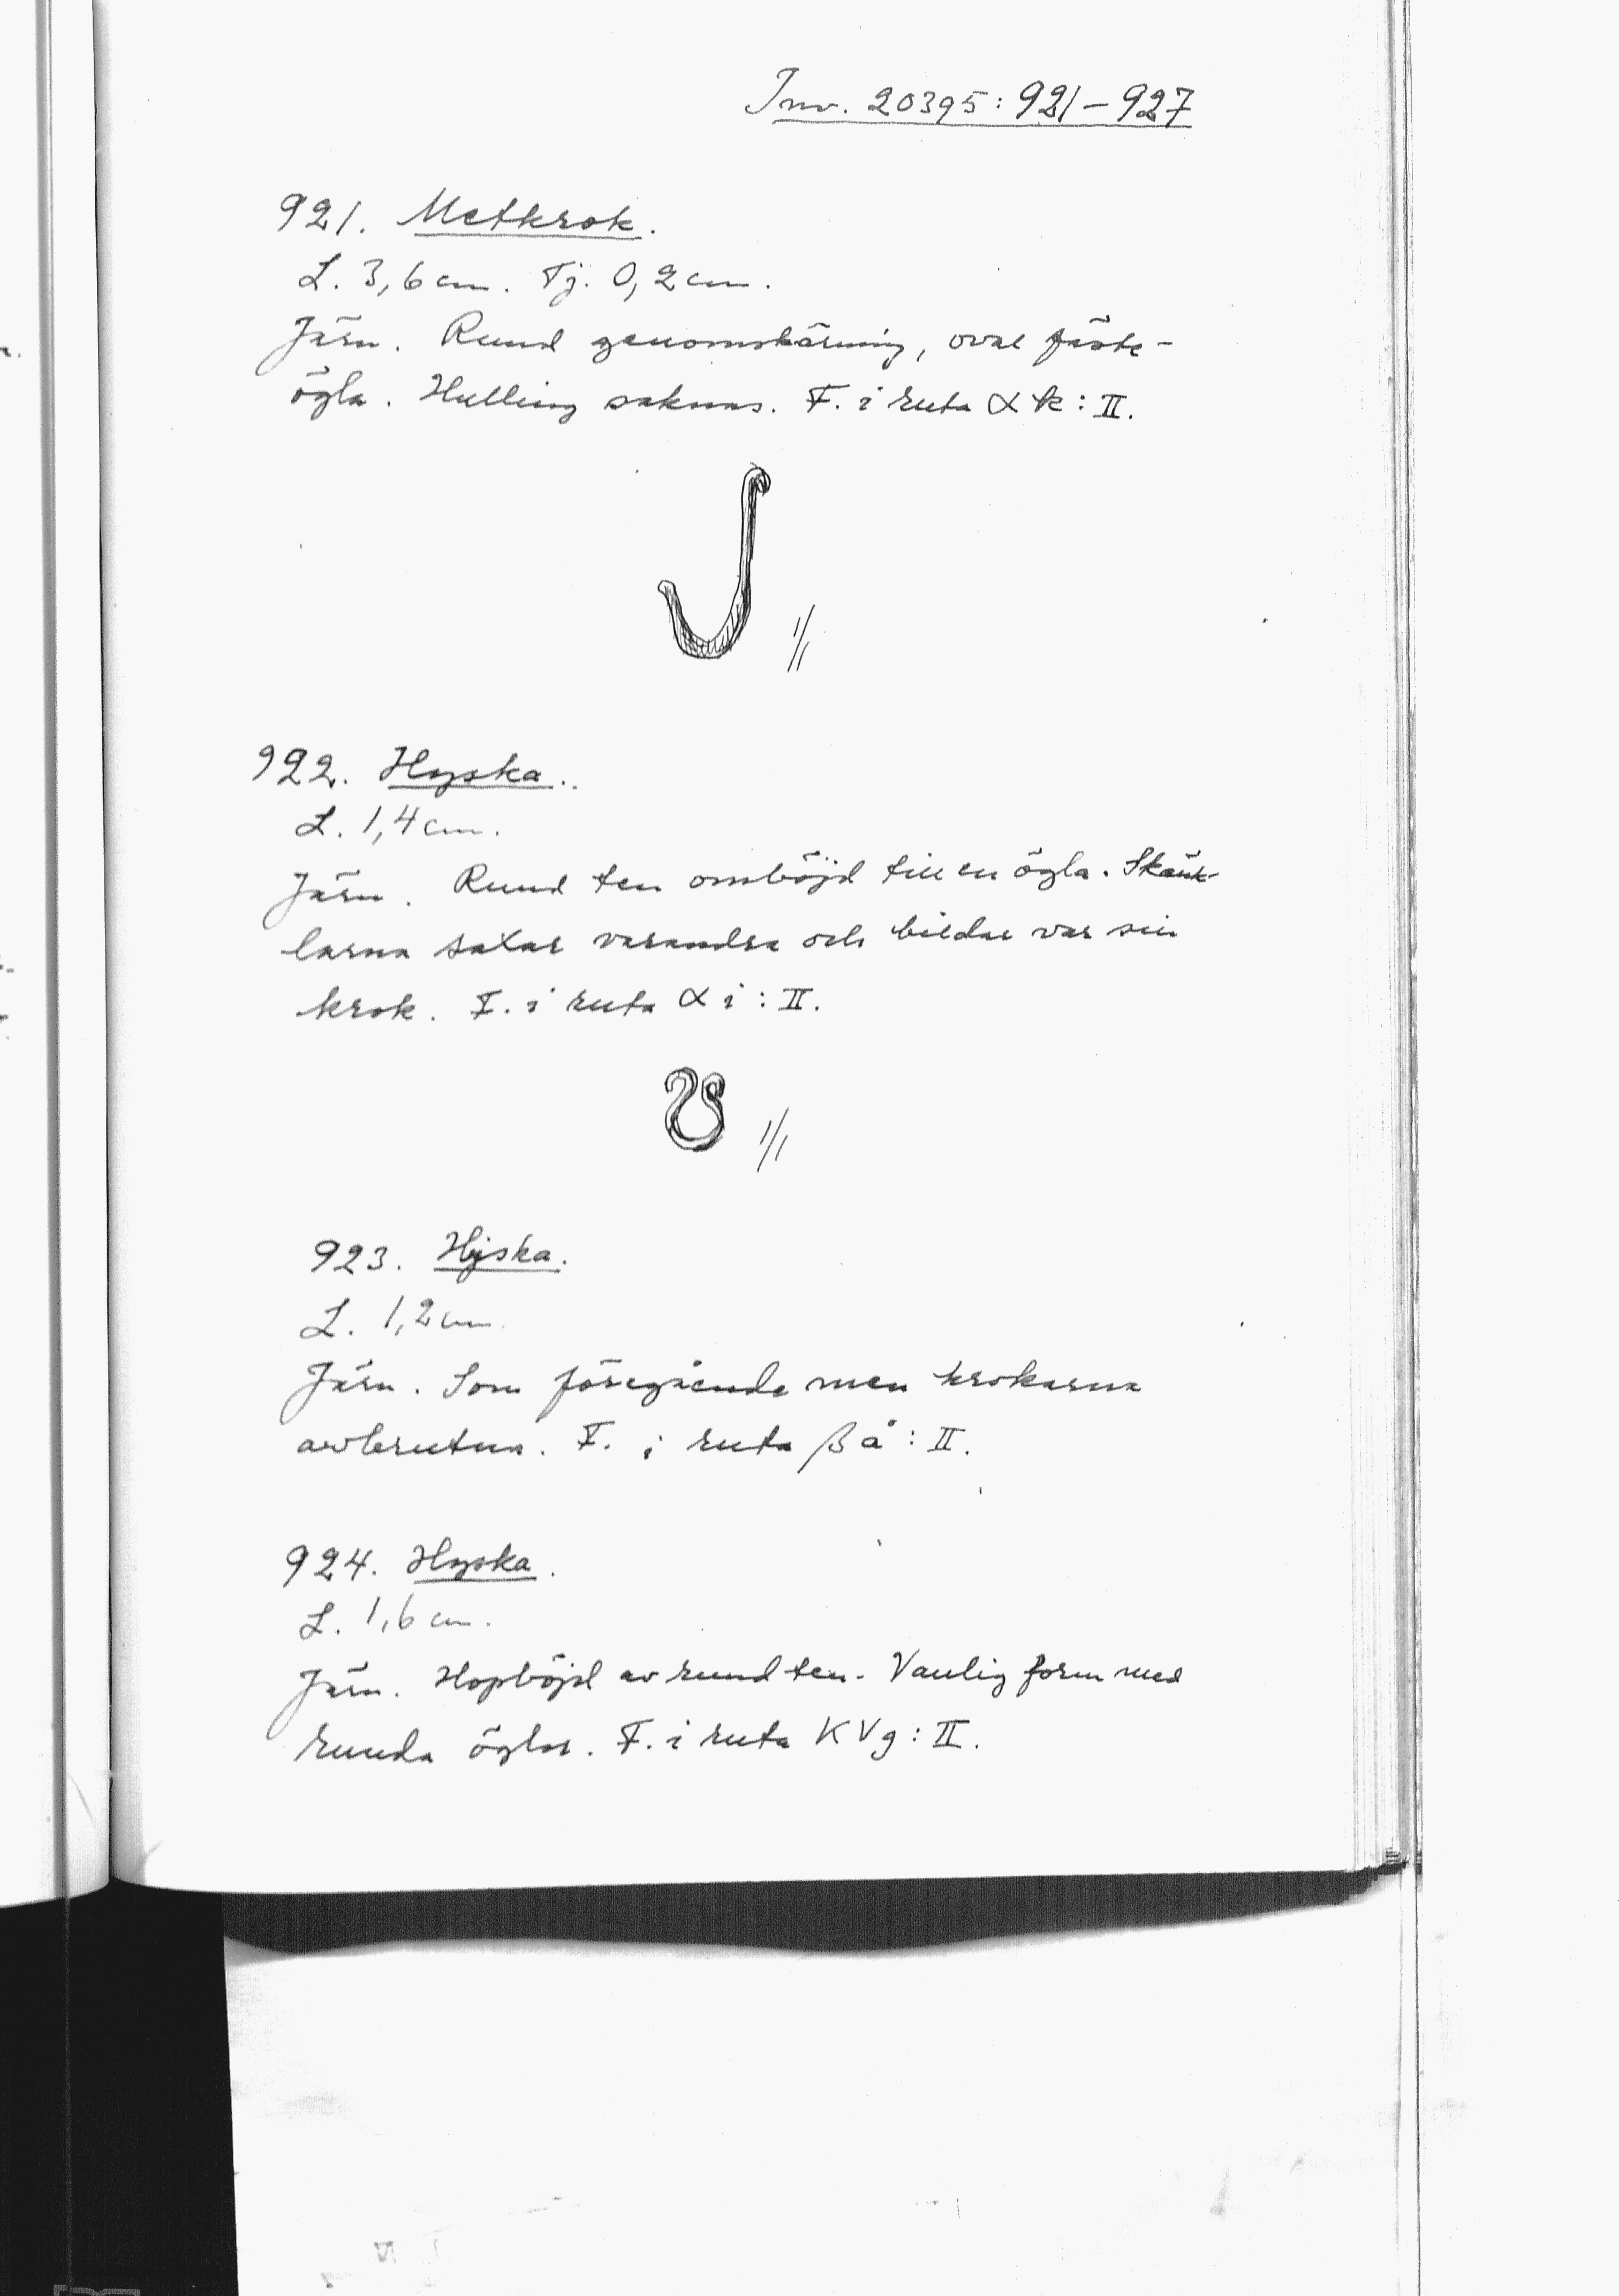 Inv. 20395: 921–927
921. Metkrok.
L. 3,6 cm. Tj. 0,2 cm.
Järn. Rund genomskärning, oval fäste-
ögla. Hulling saknas. F. i ruta αk: II.
1/1
922. Hyska.
L. 1,4 cm.
Järn. Rund ten omböjd till en ögla. Skänk-
larna saxar varandra och bildar var sin
krok. F. i ruta αi: II.
1/1
923. Hyska.
L. 1,2 cm.
Järn. Som föregående men krokarna
avbrutna. F. i ruta βå: II.
924. Hyska.
L. 1,6 cm.
Järn. Hopböjd av rund ten. Vanlig form med
runda öglor. F. i ruta KVg: II.